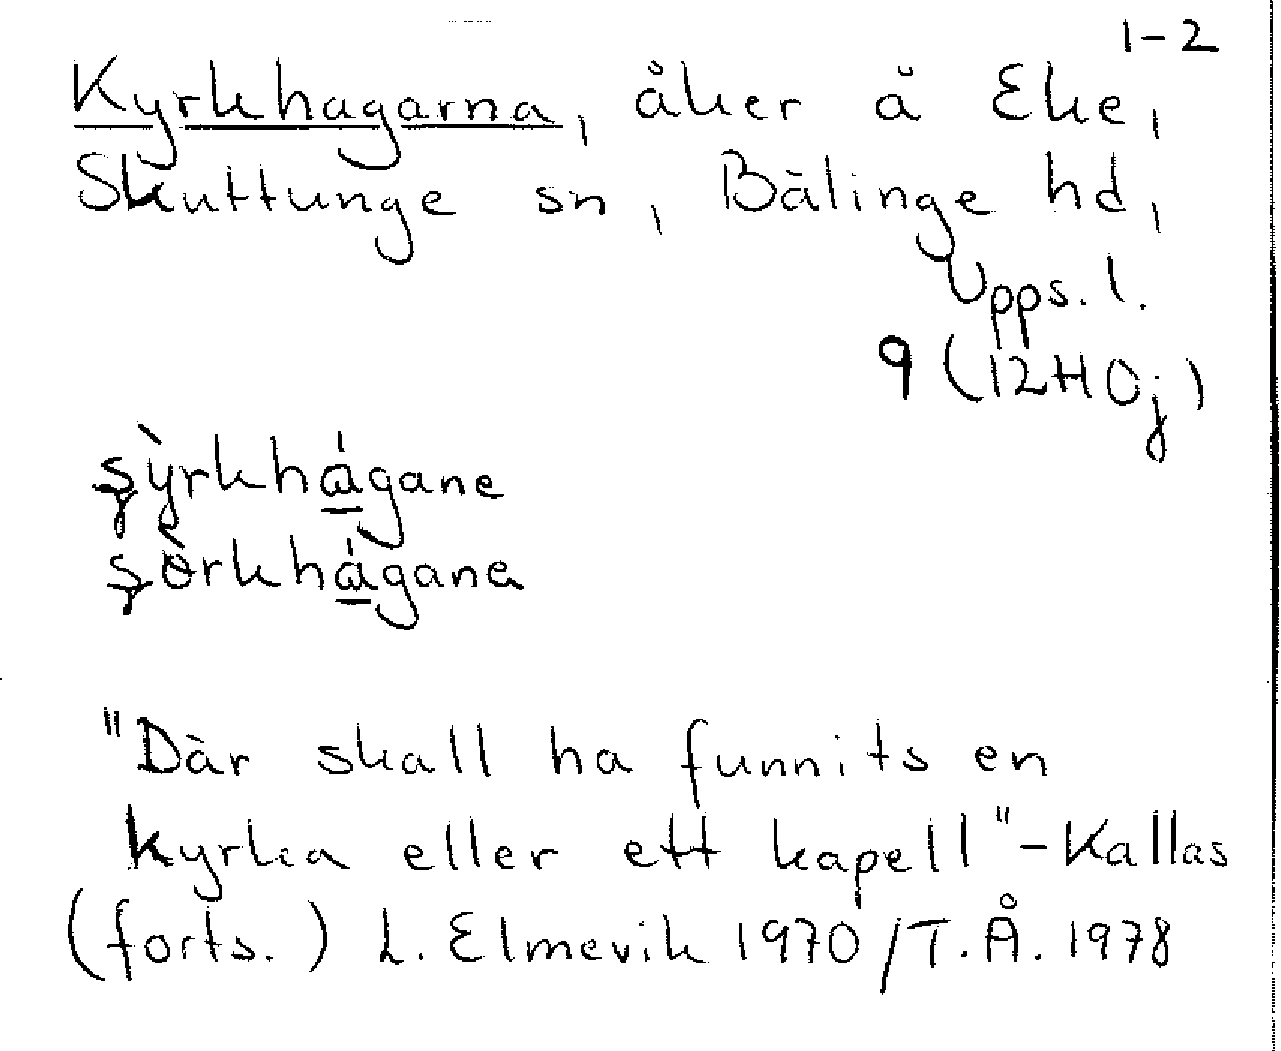 1-2
Kyrkhagarna, åker å Eke,
Skuttunge sn, Bälinge hd,
Upps. l.
9 (12H0j)
ʂỳrkhágane
ʂɵ̀rkhágana
"Där skall ha funnits en
kyrka eller ett kapell" - Kallas
(forts.) L. Elmevik 1970/T.Å. 1978